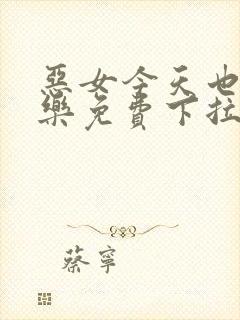 惡女今天也
樂免費下拉
蔡寧